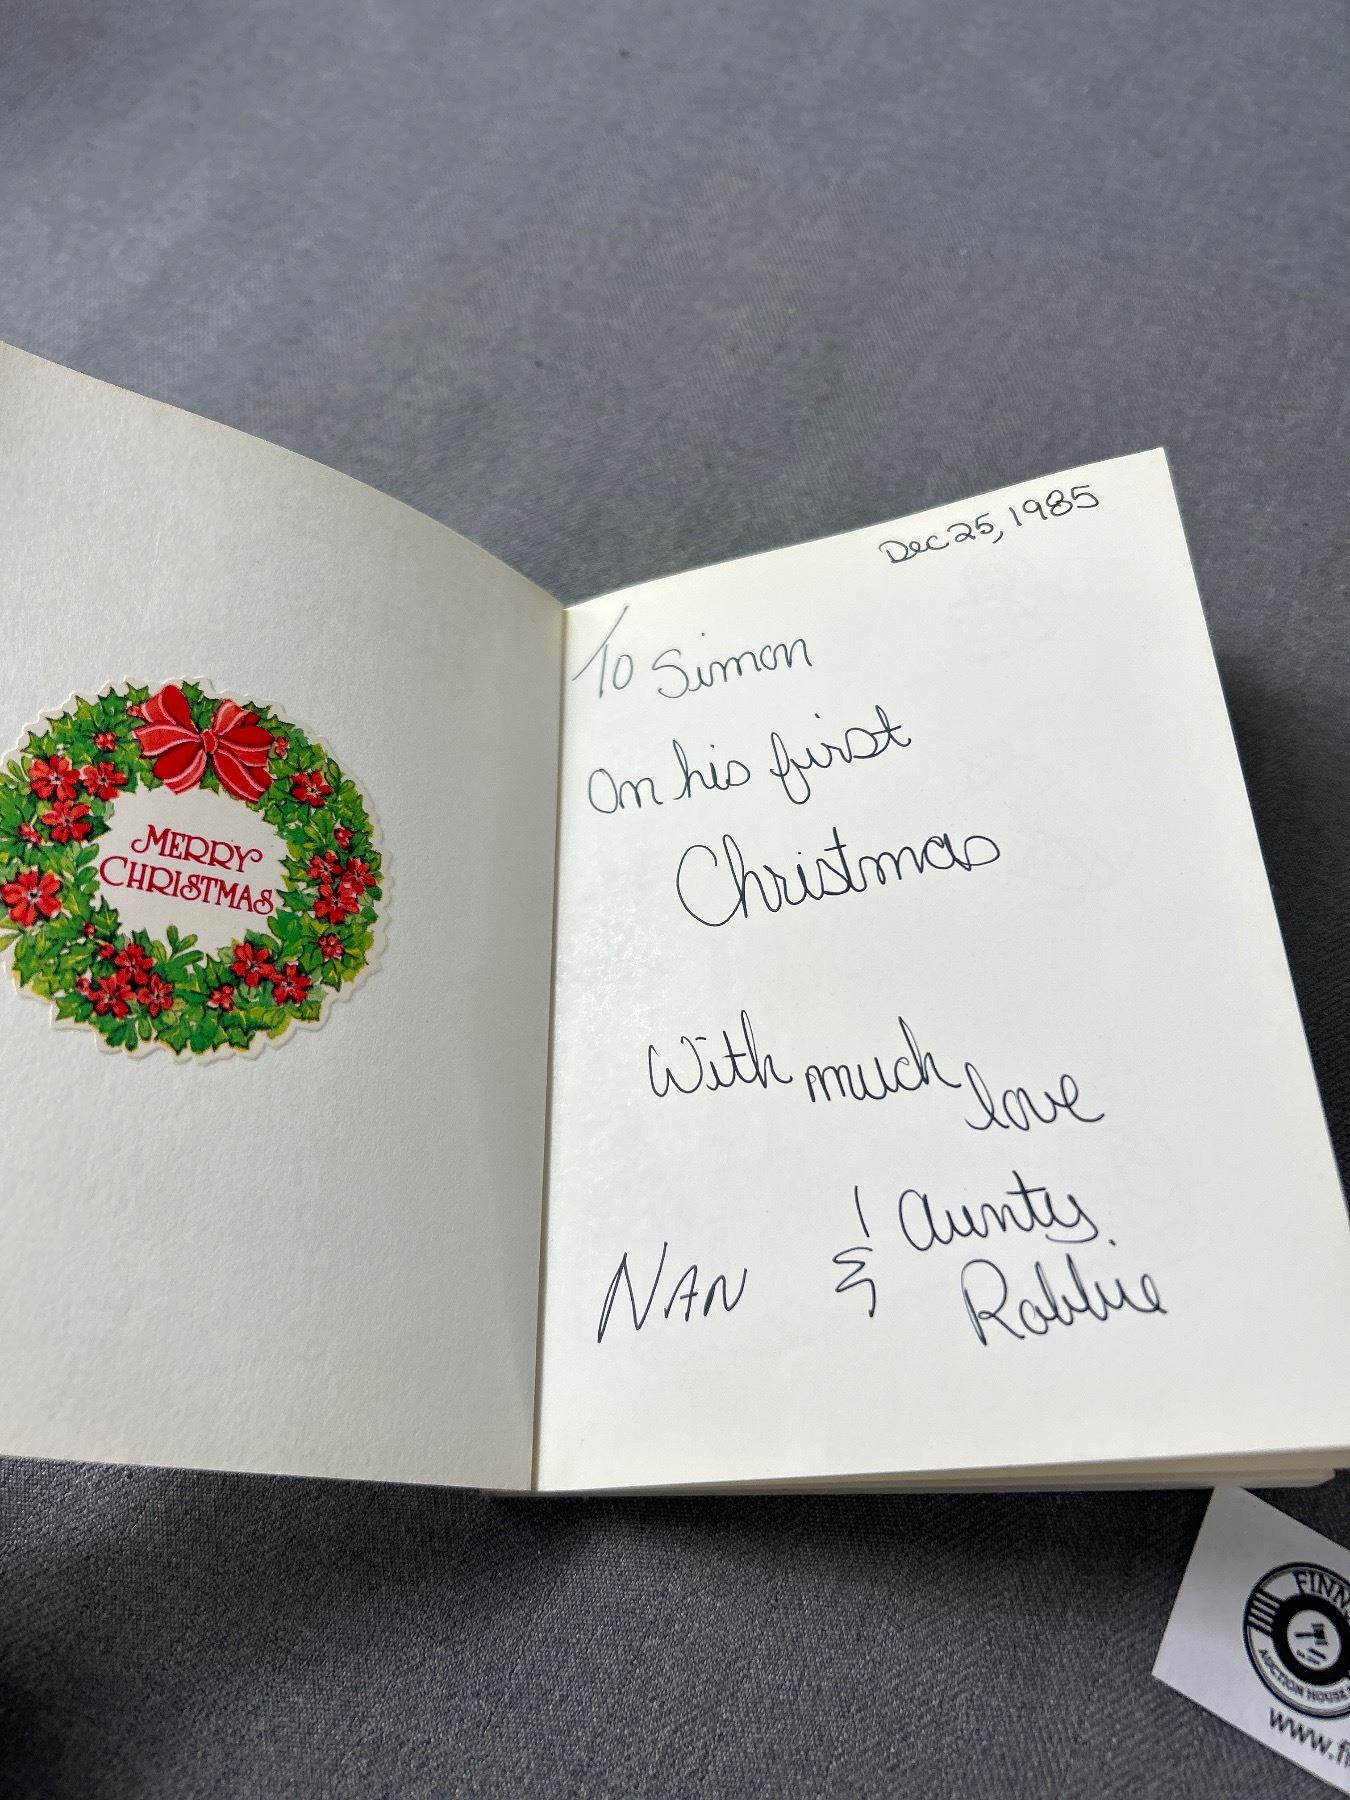 MERRY
CHRISTMAS
Dec 25, 1985
To Simon
On his first
Christmas
With much love
Nan & Aunty
Robbie
AUCTION HOUSE